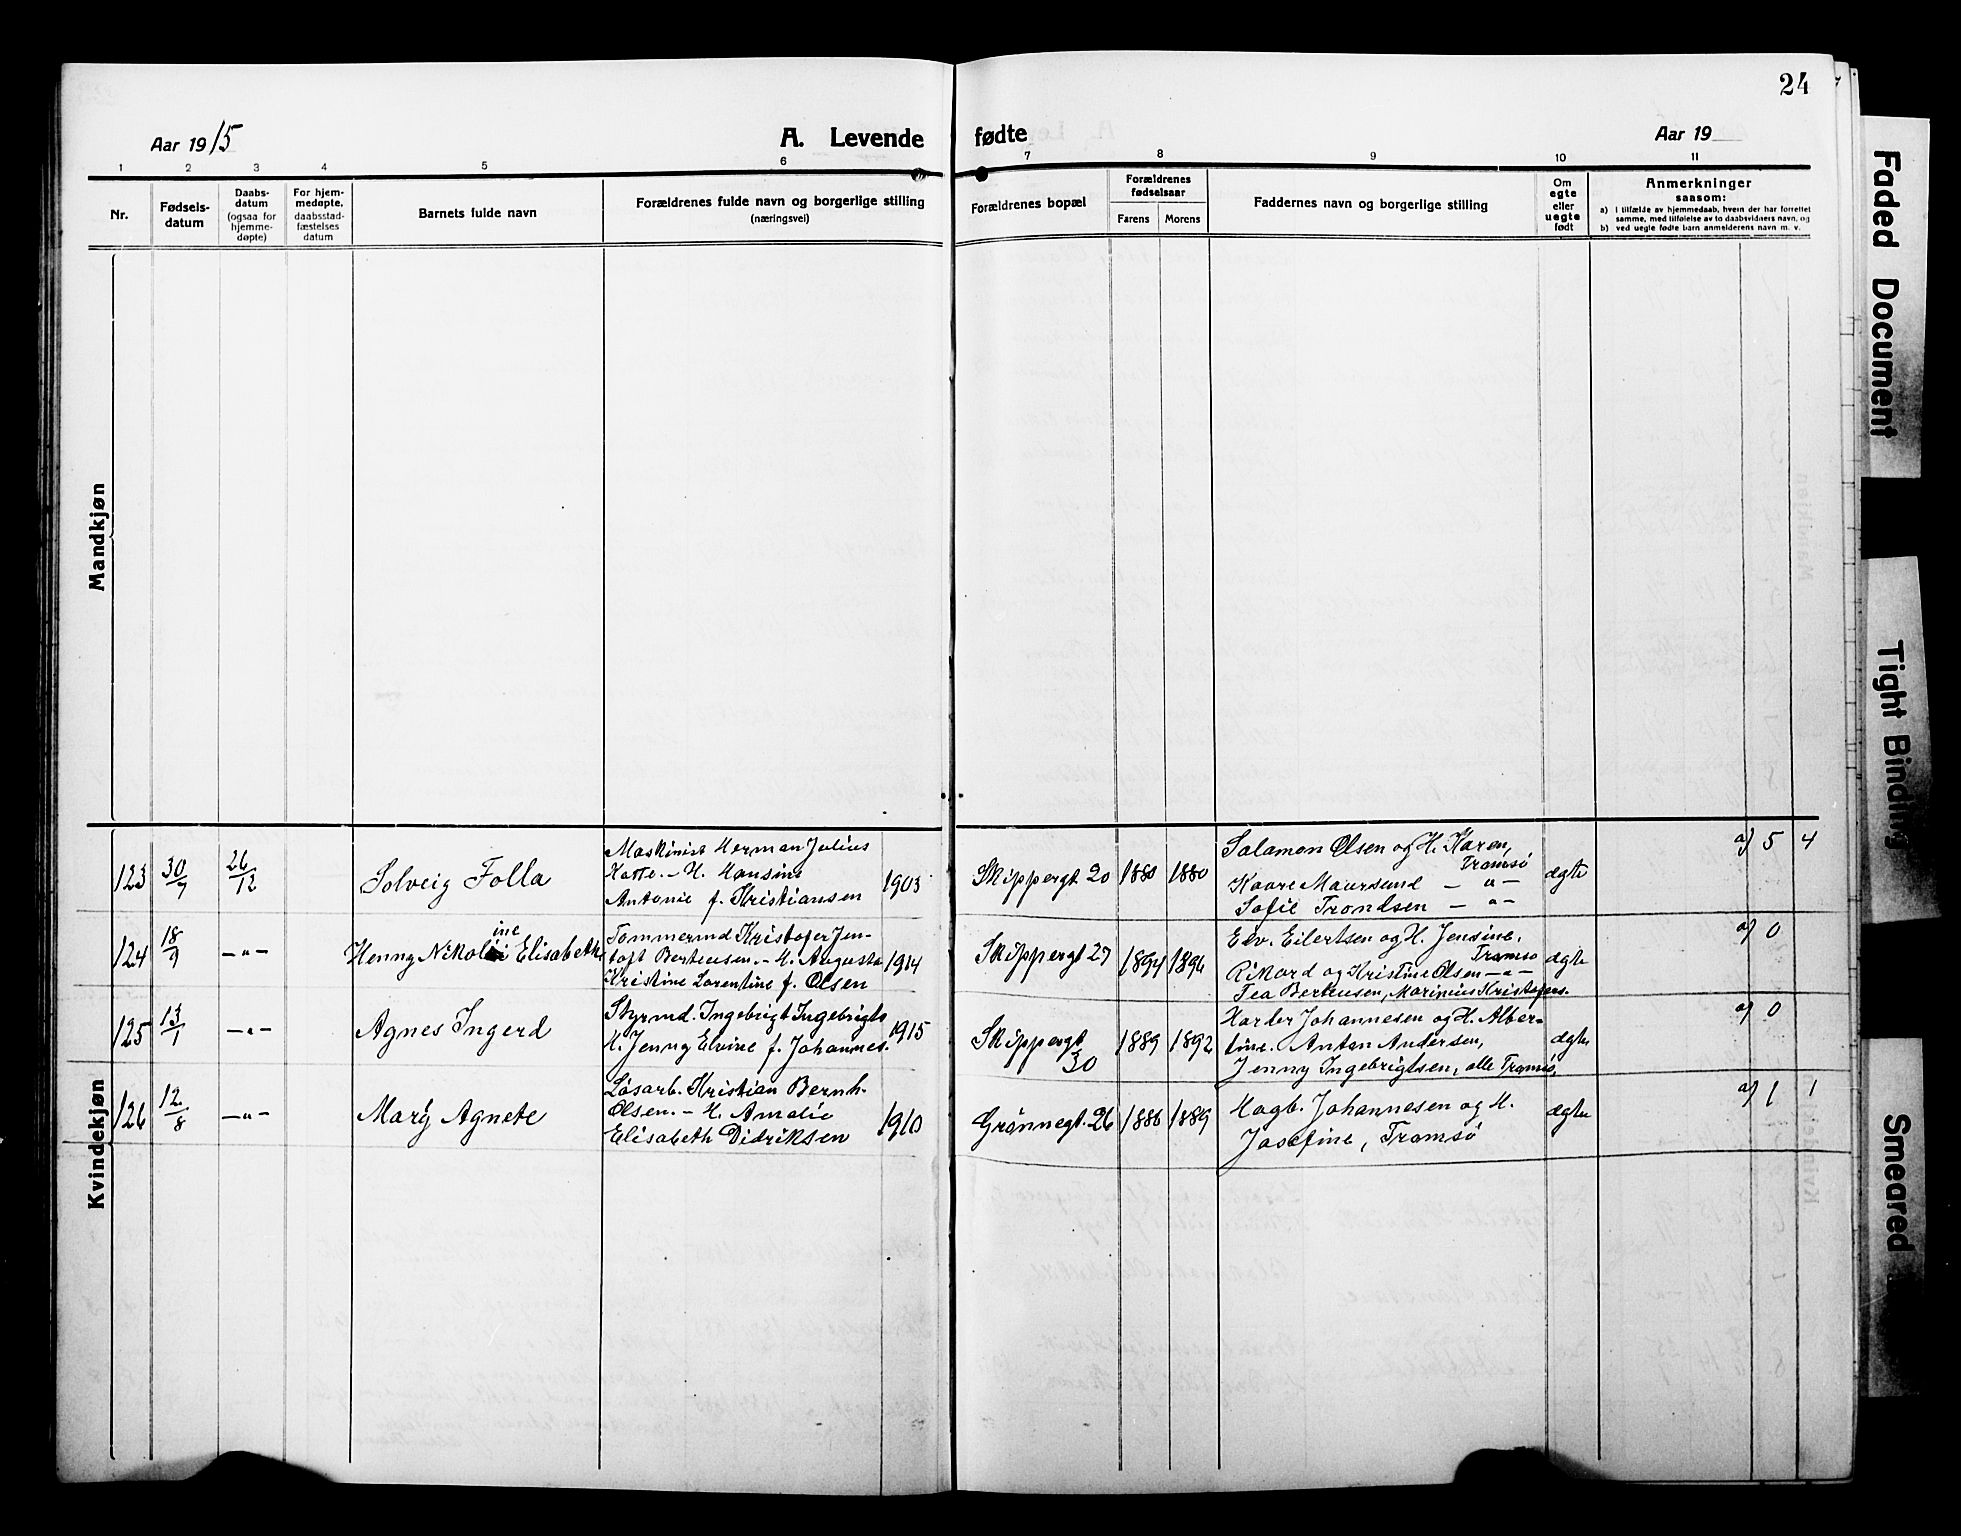 24
Aar 1915
A. Levende
fødte
Aar 19
1 2 3 4 5 6
7 8 9 10 11
Nr.
Fødsels-
datum
Daabs-
datum
(ogsaa for
hjemme-
døpte)
For hjem-
medøpte,
daabsstad-
fæstelses
datum
Barnets fulde navn
Forældrenes fulde navn og borgerlige stilling
(næringsvei)
Forældrenes bopæl
Forældrenes
fødselsaar
Farens Morens
Faddernes navn og borgerlige stilling
Om
egte
eller
uegte
født
Anmerkninger
saasom:
a) i tilfælde av hjemmedaab, hvem der har forrettet
samme, med tilføielse av to daabsvidners navn, og
b) ved uegte fødte barn anmelderens navn m. v.
Mandkjøn
Kvindekjøn
123
30/7
26/12
Solveig Folla
Maskinist Herman Julius
- H. Hansine
Antonie f. Kristiansen
1903
Skippergt 20
1880
1880
Salamon Olsen og H. Karen,
Tromsø
Kaare Maursund - " -
Sofie Trondsen - " -
ægte
a) 5 4
124
18/9
- " -
ine
Henny Nikoli Elisabeth
Tømmermd Kristofer Jen-
toft Berteusen. - H. Augusta
Kristine Lorentine f. Olsen
1914
Skippergt 27
1894
1896
Edv. Eilertsen og H. Jensine,
Tromsø
Rikard og Kristine Olsen - " -
Tea Berteusen, Marinius Kristofers.
ægte
a) 0
125
13/1
- " -
Agnes Ingerd
Styrmd. Ingebrigt Ingebrigts
H. Jenny Elvine f. Johannes.
1915
Skippergt
30
1889
1892
Harder Johannesen og H. Alber-
tine. Anton Andersen,
Jenny Ingebrigtsen, alle Tromsø.
ægte
a) 0
126
12/8
- " -
Mary Agnete
Løsarb. Kristian Bernh.
Olsen. - H. Amalie
Elisabeth Didriksen
1910
Grønnegt. 26
1886
1889
Hagb. Johannesen og H.
Josefine, Tromsø
ægte
a) 1 1
Faded Document
Tight Binding
Smeared